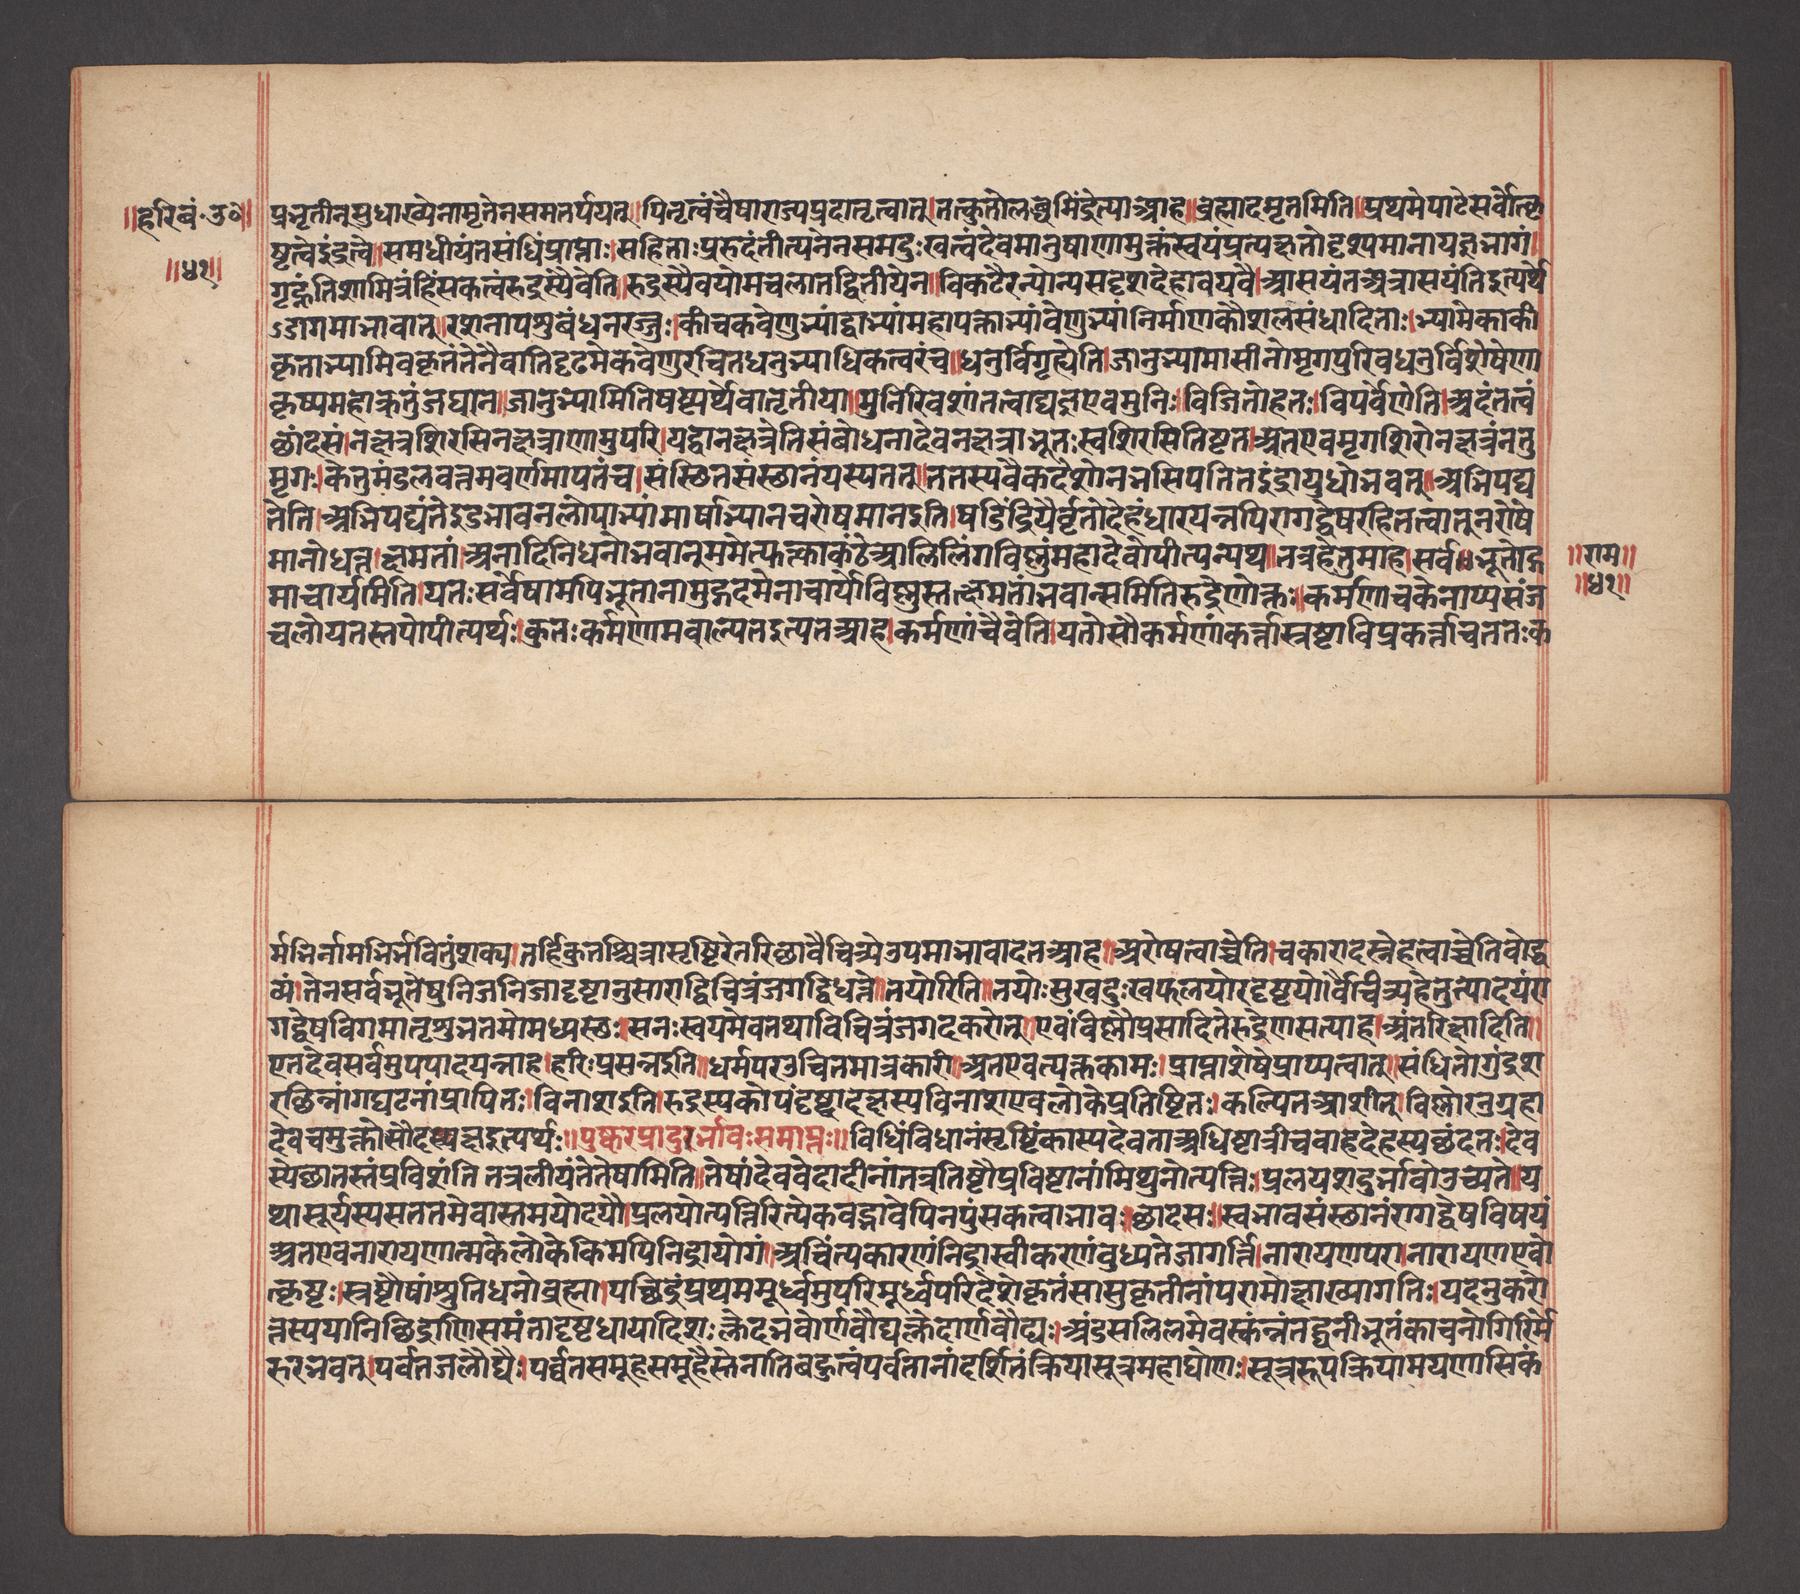 ॥हरिवं॰उ०॥
॥५१॥
प्रभृतीन्सुधाख्येनामृतेनसमतर्पयत्॥पितृत्वंचैषाराज्यप्रदातृत्वात्।तत्कुतोलब्धमिंद्रेत्याआह॥ब्रह्मादमृतमिति॥प्रथमेपाटेसर्वोत्कृ
ष्टत्वेइंद्रत्वे॥समधीयंतसंधिंप्राप्ताः।सहिताःप्ररुदंतीत्यनेनसमदुःखत्वंदेवमानुषाणामुक्तंस्वयंप्रत्यक्षतोदृश्यमानायज्ञभागं॥
गृह्णंतिशामित्रंहिंसकत्वंरुद्रस्यैवेति॥रुद्रस्यैवयोमचलातद्वितीयेन॥विकटैरन्योन्यसदृशदेहावयवै।आसयंतअत्रासयंतिइत्यर्थे
ऽडागमाभावात्॥रशनापशुबंधनरज्जुः।कीचकवेणुभ्यांद्वाभ्यांमहापक्ताभ्यांवेणुभ्यांनिर्माणकौशलसंधादिताः।भ्यामेकाकी
कृताभ्यामिवकृतंतेनैवातिदृढमेकवेणुरचितधनुभ्याधिकत्वरंच॥धनुर्विगृह्येति।जानुभ्यामासीनोमृगपुरिवधनुर्विशेषेणा
कृष्यमहाक्रतुंजघान॥जानुभ्यामितिषष्ट्यर्थेवातृतीया॥मुनिरिवशांतत्वाद्यज्ञएवमुनिः।विजितोहतः।विपर्वेणेति।अदंतत्वं
छांदसं।नक्षत्रशिरसिनक्षत्राणामुपरि।यद्वानक्षत्रेतिसंबोधनादेवनक्षत्राभूतःस्वशिरसितिष्टत।अतएवमृगशिरोनक्षत्रंनतु
मृगः।केतुमंडलवत्नमवर्णमापतंच।संस्थितसंस्थानंयस्यतत्॥ततस्यवैकदेशोनभसिपतितइंद्रायुधोभवत्॥अभिपद्य
तेति।अभिपद्यंतेइडभावनलोपाभ्यांमार्षाभ्यानचरोषमानइति।षडिंद्रियैर्वृतोदेहंधारयन्नपिरागद्वेषरहितत्वात्नरोषे
मानोधत्त।क्षमतां।अनादिनिधनोभवान्ममेत्फत्काकंठेआलिलिंगविष्णुंमहादेवोपीत्यन्यथ॥तत्रहेतुमाह।सर्व॥भूतोद्ग
माचार्यमिति।यतःसर्वेषामपिभूतानामुद्गदमेनाचार्योविष्णुस्तत्क्षमतांभवान्समितिरुद्रेणोक्तः॥कर्मणाचकेनाप्यसंज
चलोयतस्तपोपीत्यर्थः।कुतःकर्मणामवाल्यतइत्यतआह।कर्मणांचैवेति।यतोसौकर्मणांकर्त्तास्त्रष्टाविप्रकर्त्ताचततःक
॥राम॥
॥५१॥
र्मभिर्नामभिर्भवितुंशक्य।तर्हिकुतश्चित्रासृष्टिरेतरिछावैचित्र्येउपमाभावादतआह॥अरोषत्वाच्चेति।चकारादस्नेहत्वाच्चेतिवोद्ध
व्यं।तेनसर्वभूतेषुनिजनिजादृष्टानुसाराद्विचित्रंजगद्विधत्ते॥तयोरिति॥तयोःसुखदुःखफलयोरदृष्टयोर्वैचित्र्यहेतुत्पादेयंरा
गद्वेषविगमात्शुभतमोमध्यस्छः।सनःस्वयमेवतथाविचित्रंजगदकरोत्॥एवंविष्णौप्रसादितेरुद्रेणसत्पाह।अंतरिक्षादिति॥
एतदेवसर्वमुपपादयन्नाह।हरिःप्रसन्नइति॥धर्मपरउचितमात्रकारी।अतएवत्यक्तकामः।प्राप्ताशेषप्राप्यत्वात्॥संधितोगुंदृश
रछिन्नांगघटनांप्रापितः।विनाशइति।रुद्रस्यकोपंदृष्ट्वादक्षस्यविनाशएवलोकेप्रतिष्टितः।कल्पितआशीत्।विष्णोरनुग्रहा
देवचमुक्तोसौदक्षइत्यर्थः॥पुष्करप्रादुर्भावःसमाप्तः॥विधिंविधानंसृष्टिंकास्यदेवताअधिष्टात्रीचवाहदेहस्यछंदतः।देव
स्येछातस्तंप्रविशंति तत्रलीयंतेतेषामिति॥तेषांदेववेदादीनांतत्रतिष्टौप्रविष्टानांमिथुनोत्पत्तिः।प्रलयशदुर्भावोउच्यते॥य
थासूर्यस्यसततमेवास्तमयोदयौ।प्रलयोत्पत्तिरित्येकवद्भावेपिनपुंसकत्वाभावः।छांदसः॥स्वभावसंस्छानंरागद्वेषविषयं
अतएवनारायणात्मकेलोकेकिमपिनिद्रायोगं।अचिंत्यकारणंनिद्रास्वीकरणंबुध्यतेजागर्त्ति।नारायणपरा।नारायणएवो
त्कृष्टः।स्त्रष्टौषांश्रुतिधनोब्रह्मा।पच्छिद्रंप्रथममूर्ध्वमुपरिमूर्ध्वपरिदेशेकृतंसासुकृतीनांपरामोक्षाख्यागतिः।यदनुकरो
त्तस्ययानिछिद्राणिसमंतादृष्टधायादिशःक्तेदभवोर्णवौद्यक्तेदार्णवौद्यः।अंडसलिलमेवस्कंन्नंतद्घनीभूतंकाचनोगिरिर्मे
रुरभवत्।पर्वतजलौद्यैः।पर्व्वतसमूहसमूहैस्तेनातिबहुत्वंपर्वतानांदर्शितंक्रियासूत्रमहाघोणः।सूत्ररूपक्रियामयणासिकं